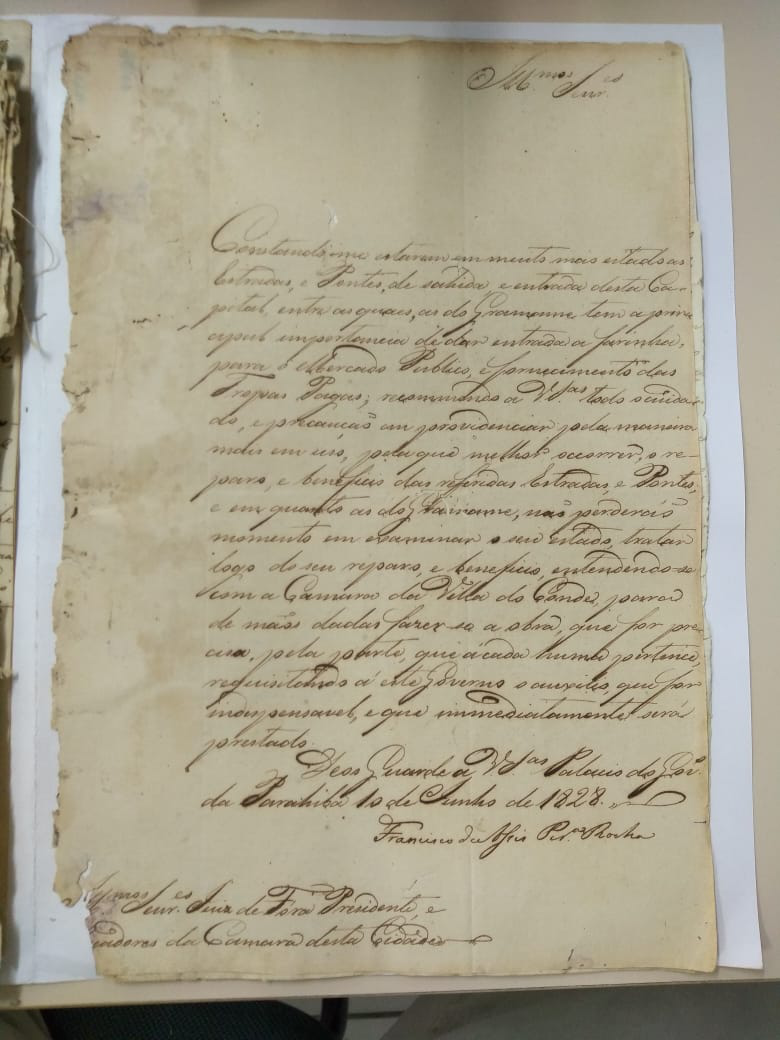 Ill.mos Senr.es
Constando-me estarem em muito máo estado as
Estradas, e Pontes, de sahida e entrada desta Ca-
pital, entre as quaes, as do Gramame tem a prin-
cipal importancia de dar entrada a farinha,
para o Mercado Publico, e fornecimento das
Tropas Pagas; recommendo a VS.as todo o cuida-
do, e precauçaõ em providenciar pela maneira
mais em uso, pela que melhor occorrer, o re-
paro, e beneficio das referidas Estradas, e Pontes,
e em quanto as do Gramame, naõ perderaõ
momento em examinar o seu estado, tratar
logo do seu reparo, e beneficio, entendendo-se
com a Camara da Villa do Conde, para
de maõs dadas fazer-se a obra, que for pre-
cisa, pela parte, que á cada huma pertence,
requisitando á este Governo o auxilio, que for
indispensavel, e que immediatamente será
prestado.
Deos Guarde a VS.as Palacio do Gov.o
da Parahiba 10 de Junho de 1828.
Francisco de Assis Per.a Rocha
Ill.mos Senr.es Juiz de Fóra Presidente, e
eadores da Camara desta Cidade